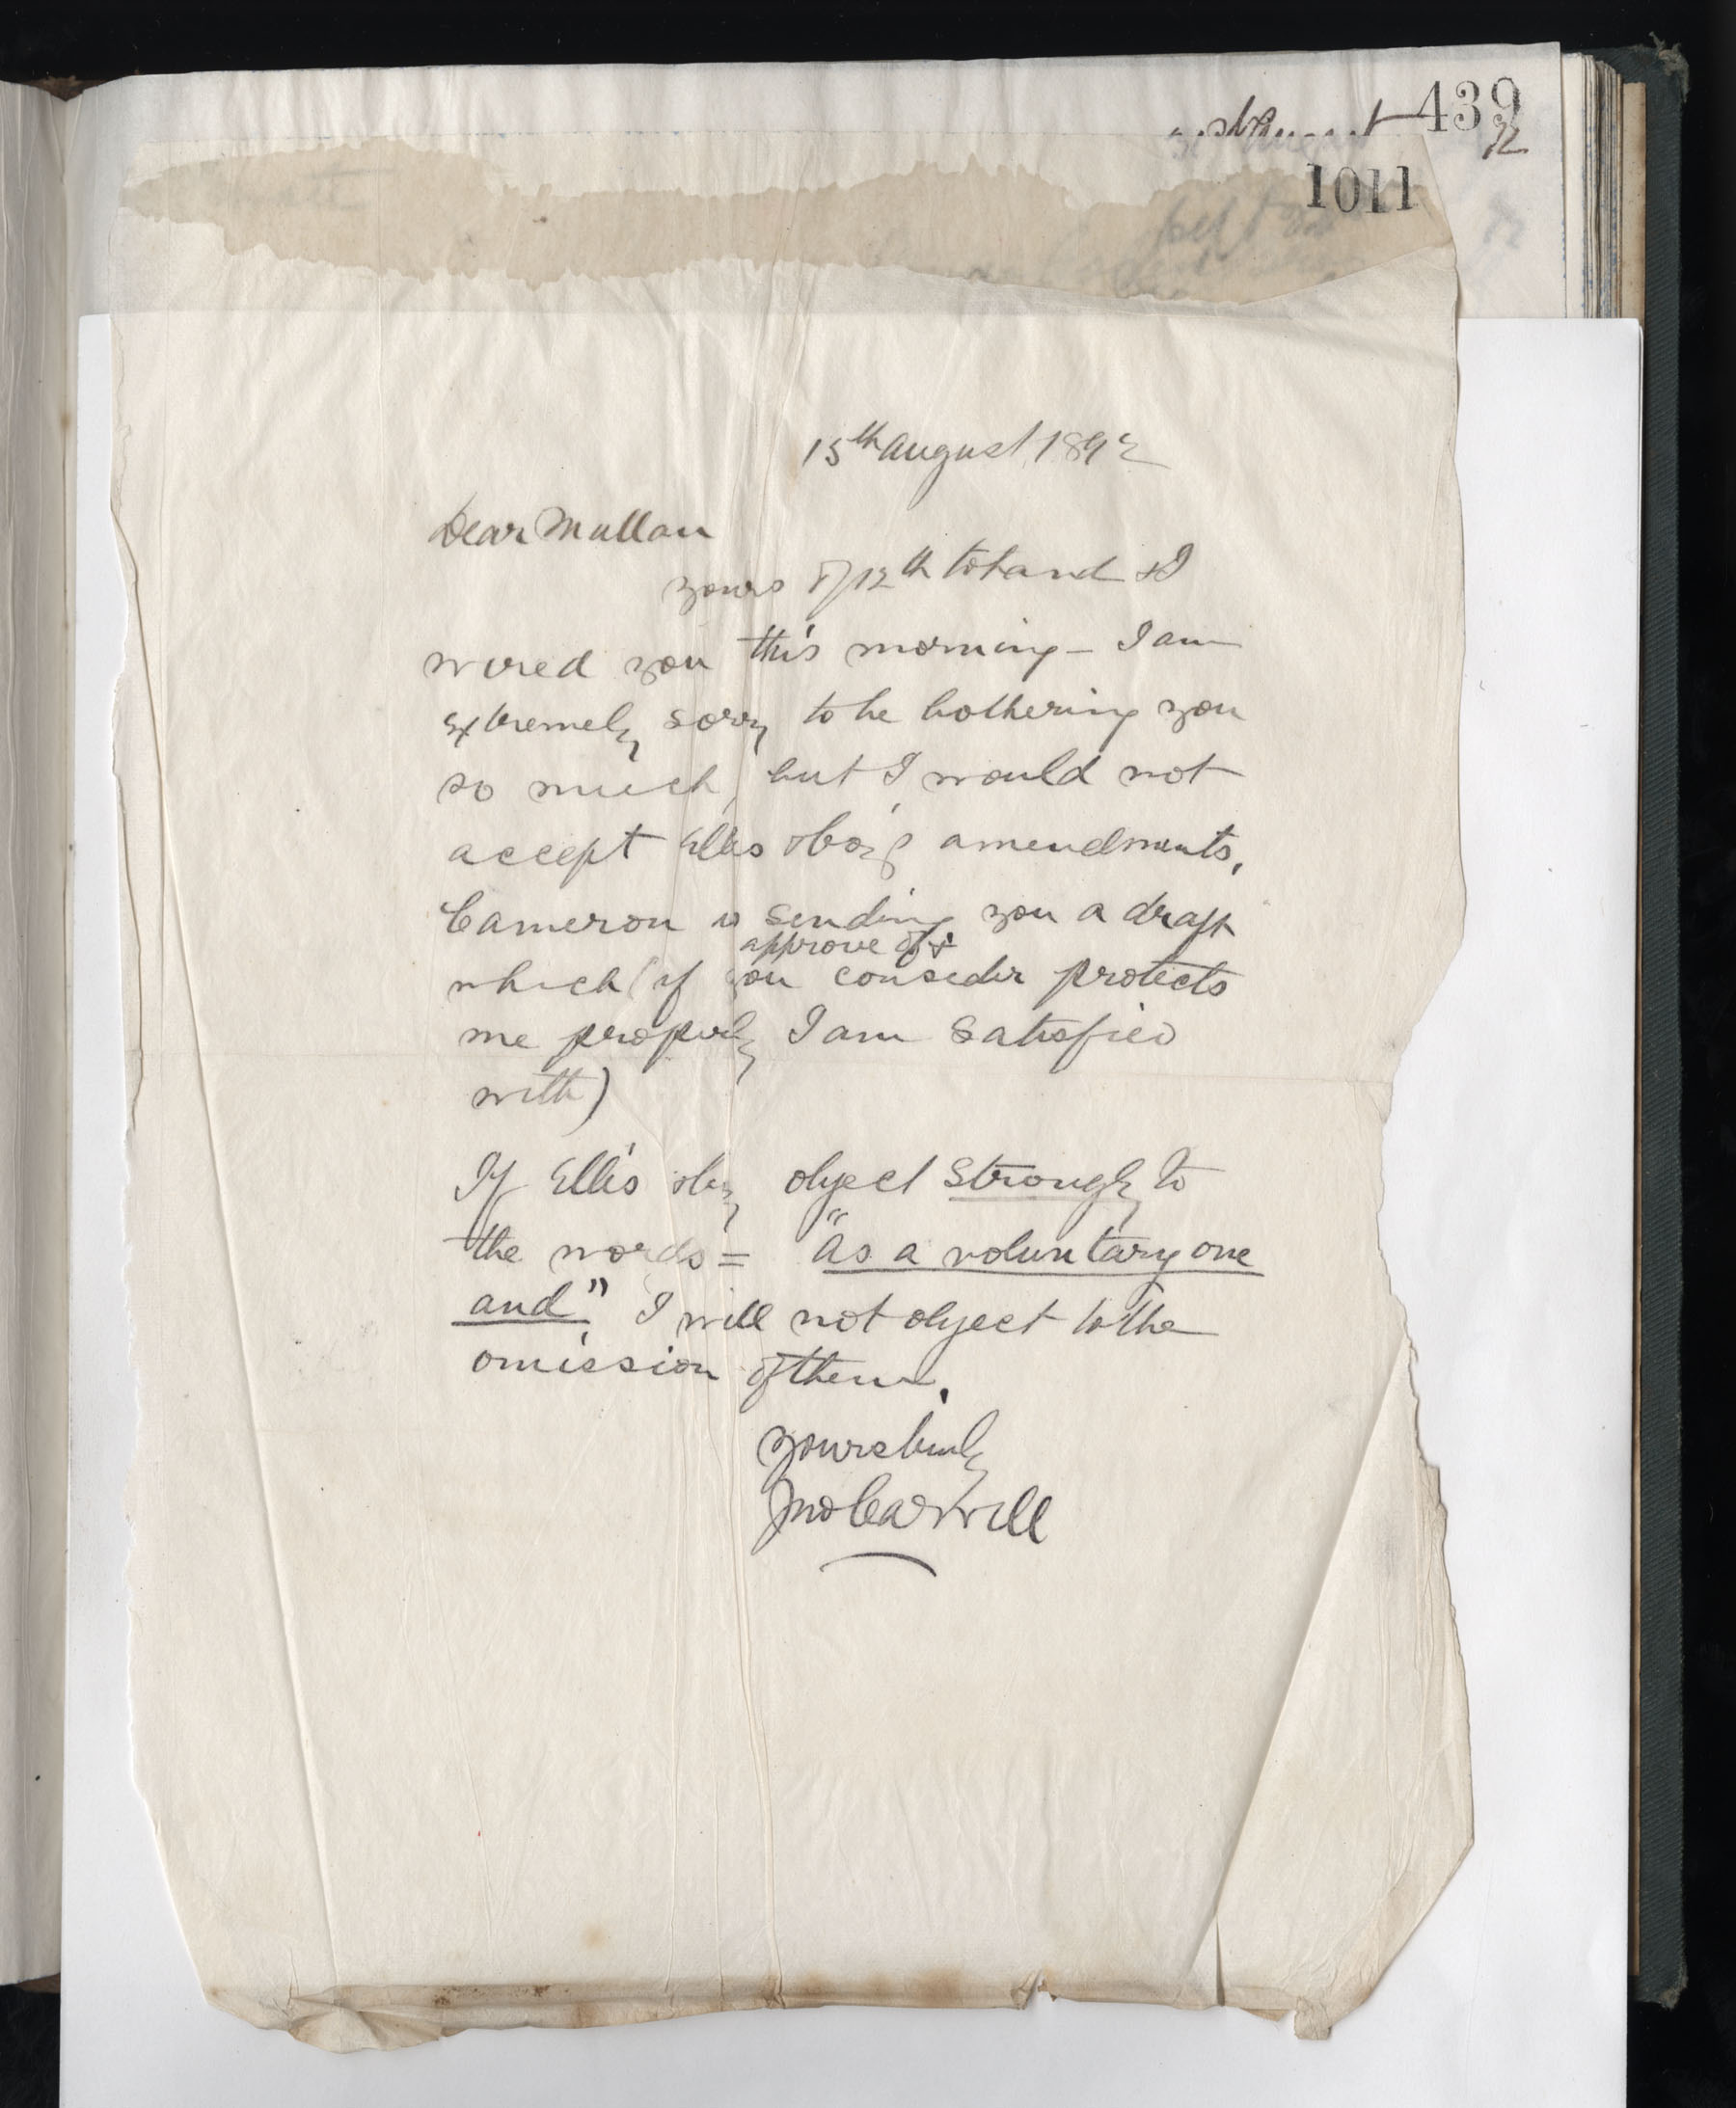 439
1011
15th August 1892
Dear Mullan
yours of 12th to hand & I
wired you this morning - I am
extremely sorry to be bothering you
so much, but I would not
accept Ellis & Coy's amendments.
Cameron is sending you a draft
approve of &
which (if you consider protects
me properly I am satisfied
with)
If Ellis & Coy object strongly to
the words = "as a voluntary one
and" I will not object to the
omission of them.
yours truly